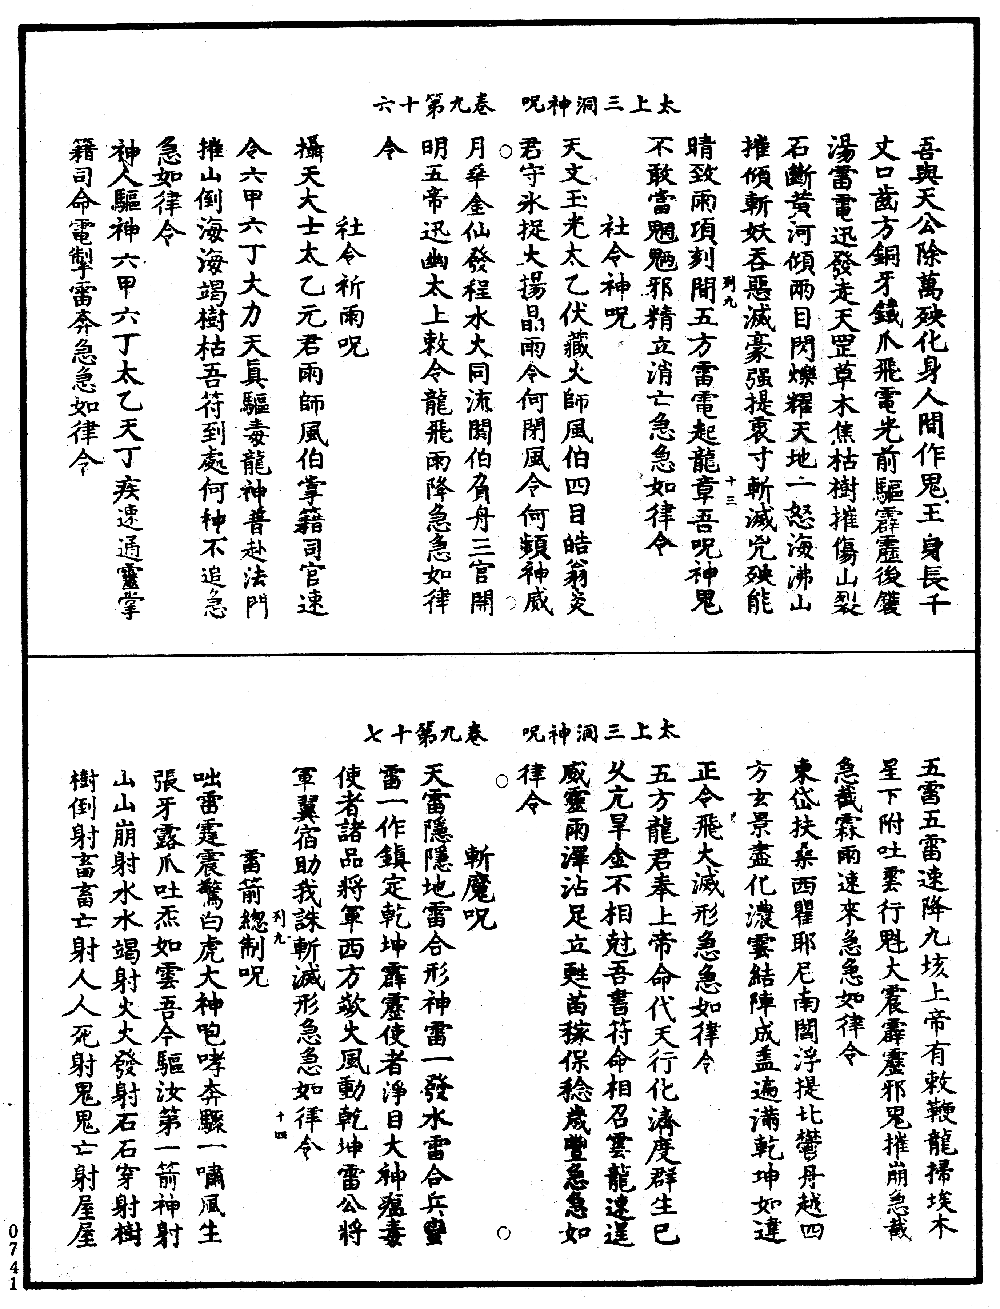 太上三洞神呪　卷九第十六
吾與天公除萬殃化身人間作鬼王身長千
丈口齒方銅牙鐵爪飛電光前驅霹靂後钁
湯雷電迅發走天罡草木焦枯樹摧傷山裂
石斷黃河傾兩目閃爍耀天地一怒海沸山
摧傾斬妖吞惡滅豪强提衷寸斬滅兇殃能
列九　十三
晴致雨項刻間五方雷電起龍章吾呪神鬼
不敢當魍魎邪精立消亡急急如律令
社令神呪
天文玉光太乙伏藏火師風伯四目皓翁炎
君守氷捉火揚晶雨令何閉風令何頻神威
月孛金仙發程水火同流閼伯脅丹三官開
明五帝迅幽太上敕令龍飛雨降急急如律
令
社令祈雨呪
攝天大士太乙元君雨師風伯掌籍司官速
令六甲六丁大力天真驅毒龍神普赴法門
摧山倒海海竭樹枯吾符到處何神不追急
急如律令
神人驅神六甲六丁太乙天丁疾速通靈掌
籍司命電掣雷奔急急如律令
太上三洞神呪　卷九第十七
五雷五雷速降九垓上帝有敕鞭龍掃埃木
星下附吐雲行魁大震霹靂邪鬼摧崩急截
急截霖雨速來急急如律令
東岱扶桑西瞿耶尼南閻浮提北鬱丹越四
方玄景盡化濃雲結陣成蓋遍滿乾坤如違
正令飛火滅形急急如律令
五方龍君奉上帝命代天行化濟度群生已
久亢旱金不相尅吾書符命相召雲龍速逞
威靈雨澤沾足立甦苗稼保稔歲豐急急如
律令
斬魔呪
天雷隱隱地雷合形神雷一發水雷合兵蠻
雷一作鎮定乾坤霹靂使者淨目大神瘟毒
使者諸品將軍西方歘火風動乾坤雷公將
軍翼宿助我誅斬滅形急急如律令
列九　十四
雷箭總制呪
咄雷霆震驚白虎大神咆哮奔驟一嘯風生
張牙露爪吐炁如雲吾今驅汝第一箭神射
山山崩射水水竭射火火發射石石穿射樹
樹倒射畜畜亡射人人死射鬼鬼亡射屋屋
0741